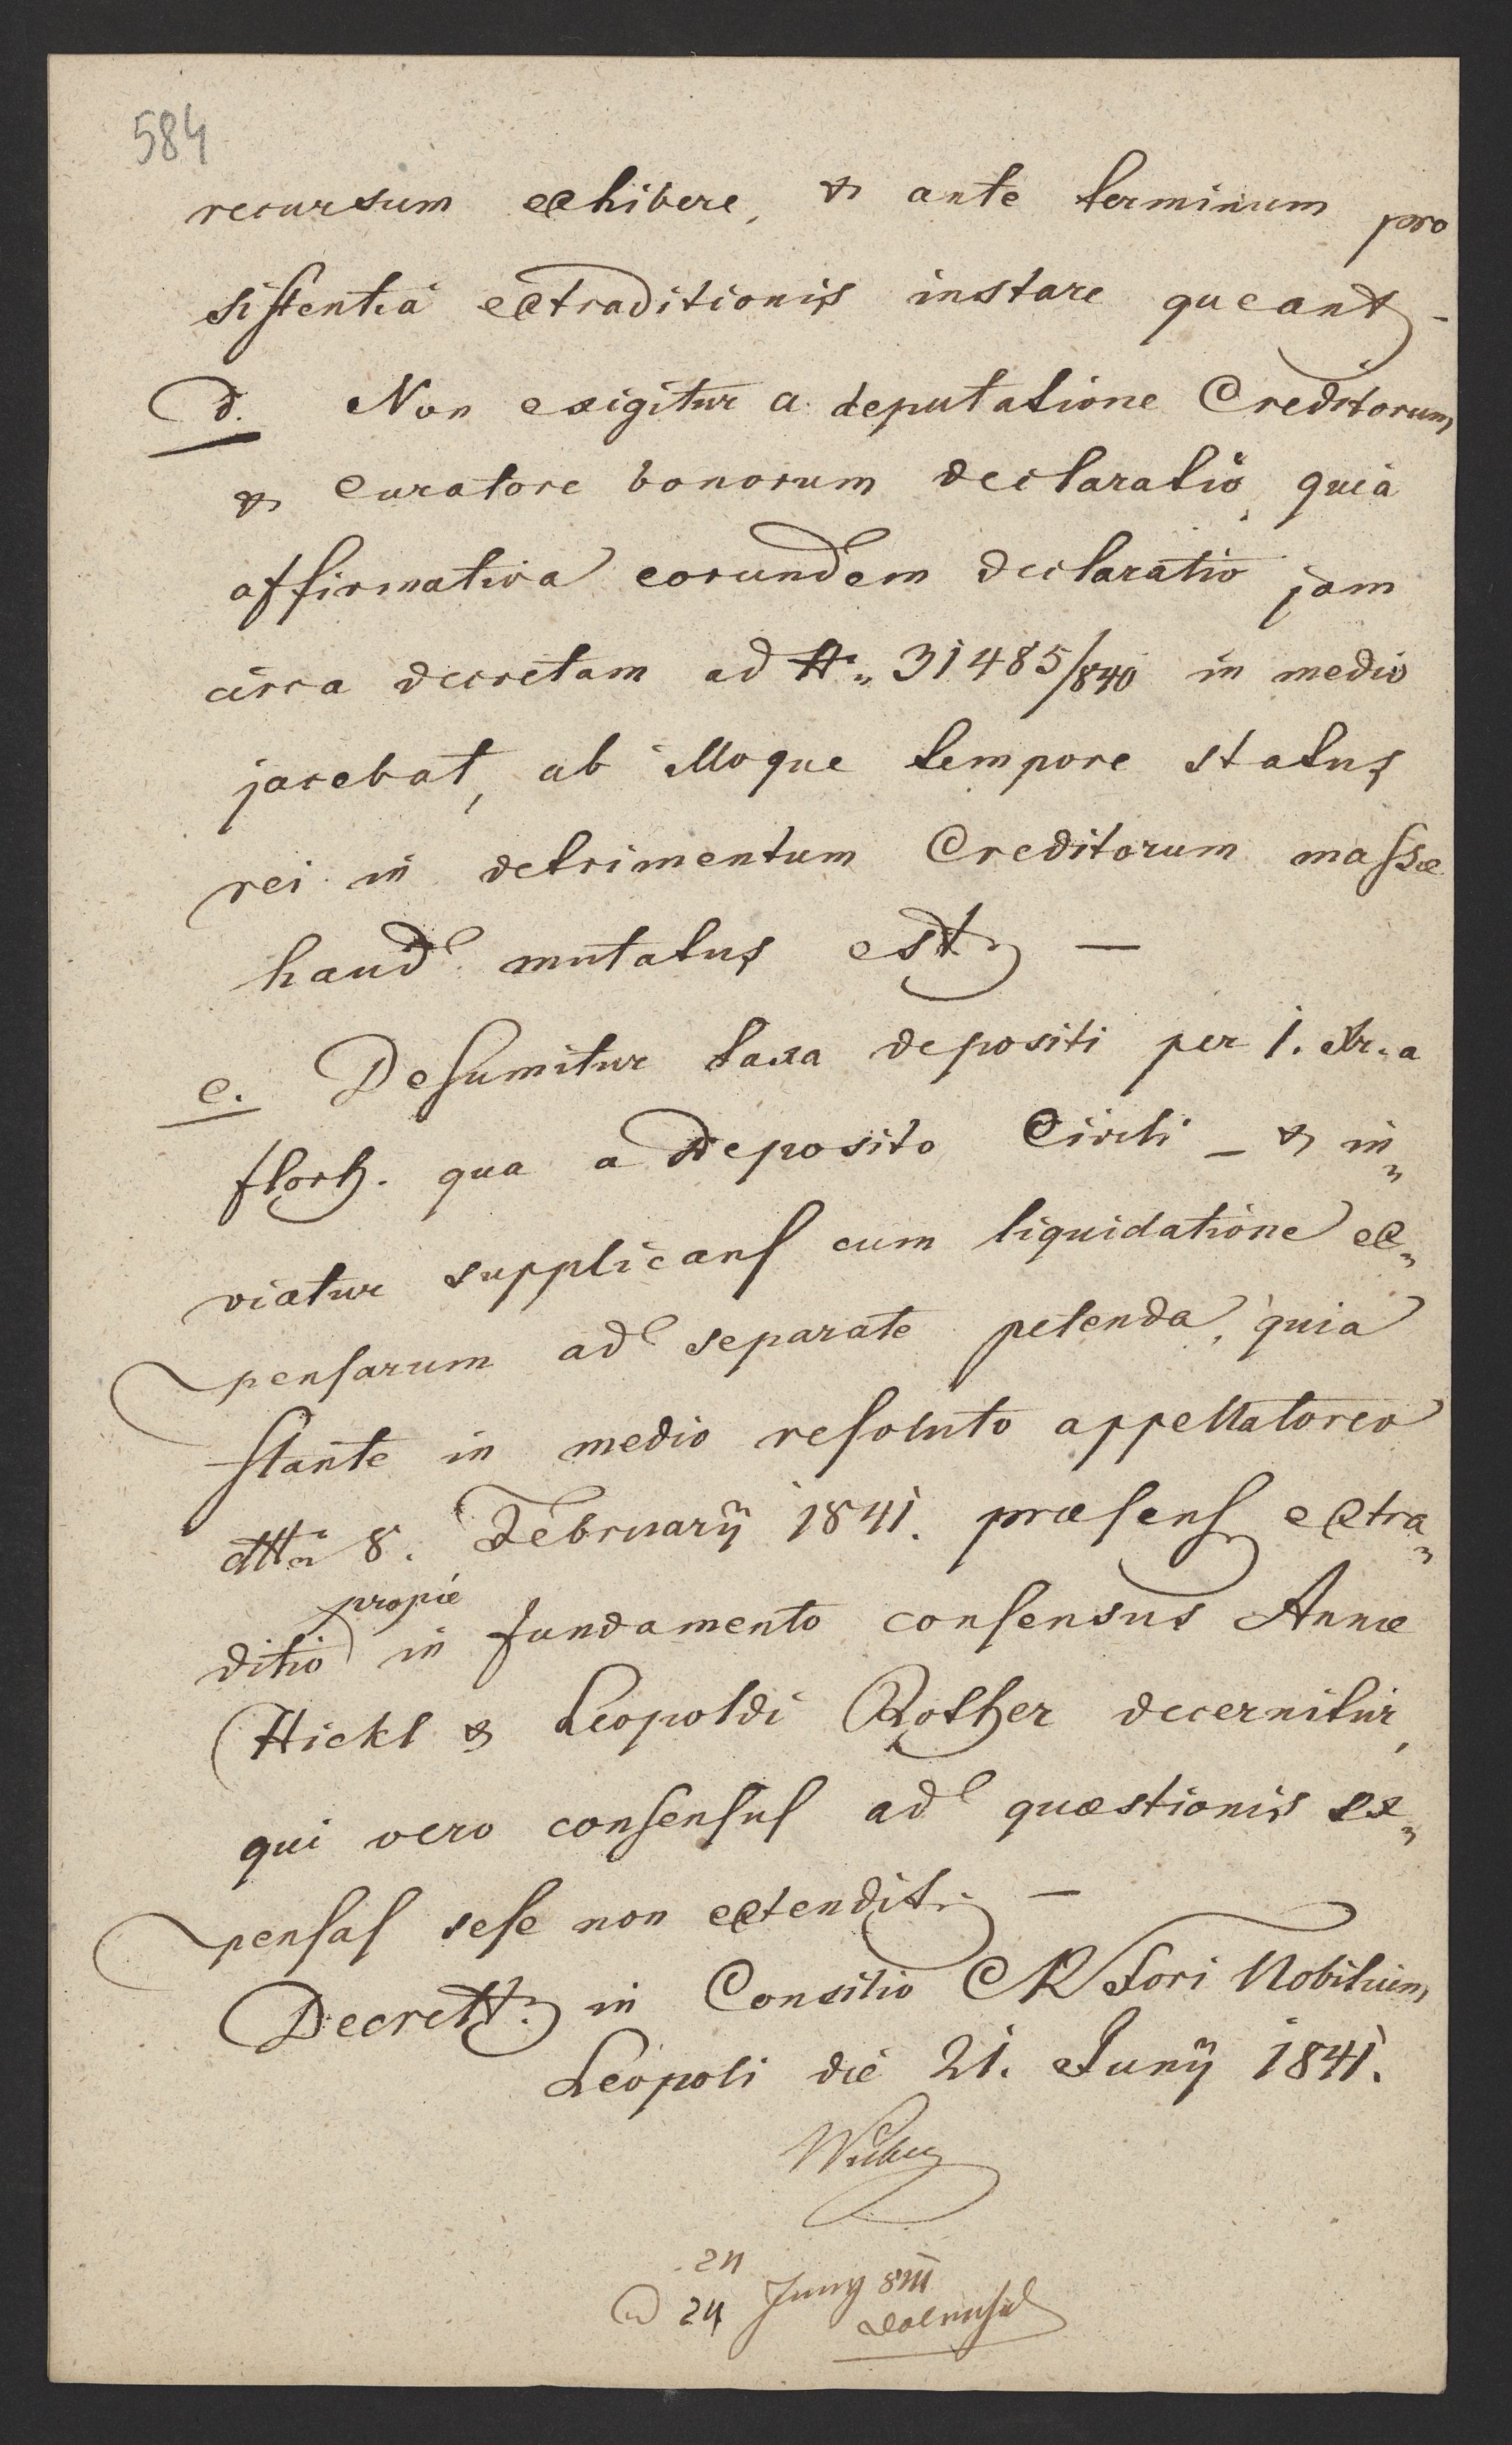 584
recursum exhibere, & ante terminum pro
sistentia extraditionis instare queant. -
d. Non exigitur a deputatione Creditorum
& Curatore bonorum declaratio, quia
affirmativa eorundem declaratio jam
circa decretam ad N. 31485/840 in medio
jacebat, ab illoque tempore status
rei in detrimentum Creditorum massæ
haud mutatus est. —
e. Desumitur taxa depositi per 1. Xr. a
florh. qua a deposito Civili - & in„
viatur supplicans cum liquidatione ex„
pensarum ad separate petenda, quia
stante in medio resoluto appellatoreo
8. February 1841. præsens extra„
propie
ditio in fundamento consensus Annæ
Hickl & Leopoldi Rother decernitur,
qui vero consensus ad quæstionis ex„
pensas sese non extendit. —
Decrett. in Consilio CR Fori Nobilium
Leopoli die 21. Juny 1841.
24
24 Juny 841